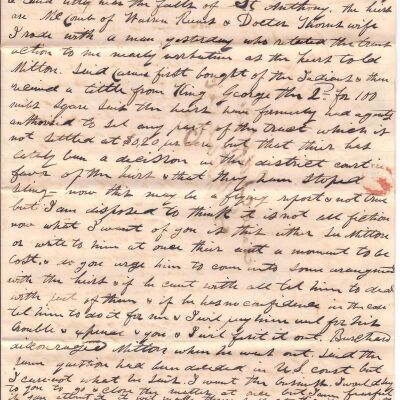 a land titly near the falls of St Anthony. The heirs
are McComb of Warren & Doctor Thorns wife
I rode with a man yesterday who stated the trans
action to me nearly verbatim as the heirs told
Milton. Said Carver first bought of the Indians & then
received a tittle from King George the 2nd for 100
mils sqare Said the heirs have formerly had agents
authorised to sel any part of this tract which is
not settled at $ per acre but that their has
lately ben a decission in the district court in
favor of the heirs & that they have stoped
seling – now this may be a flying report & not true
but I am disposed to think it is not all fiction
now what I want of you is this ither se Milton
or write to him at once their aint a moment to be
lost, & do you urge him to come into some arangement
with the heirs & if he cant with all tel him to deal
with part of them & if he has no confidence in the case
tel him to do it for me & I wil pay him wel for his
trouble & expence & you & I wil foot it out. Burchard
discouraged Milton when he went out. Said the
same question had been decided in U.S. court but
I care not what he said. I want the business I would say
to you to go & close the matter at once but I am fearful